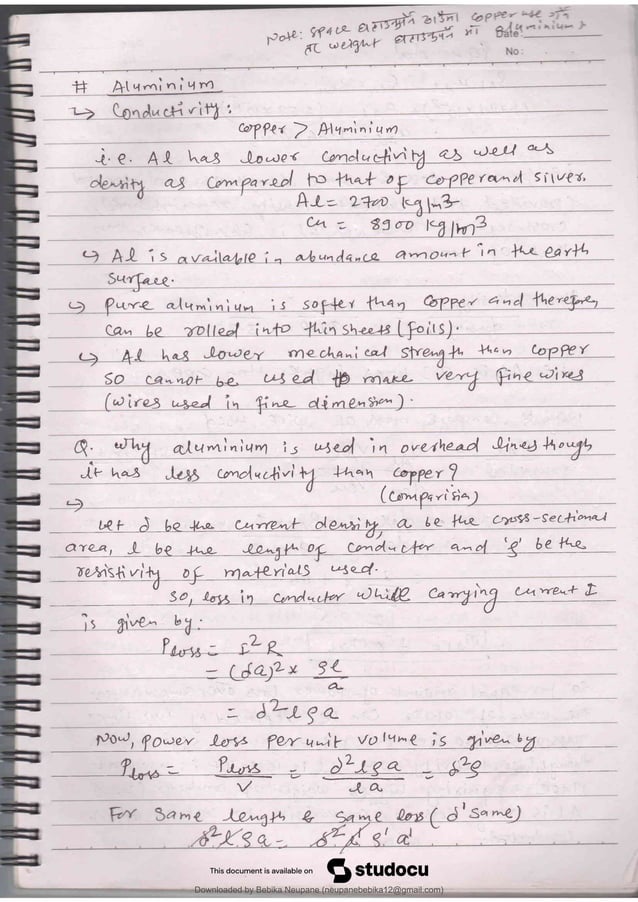 Note: space घटाउनुपर्ने ठाउँमा copper use गर्ने
तर weight घटाउनुपर्ने मा aluminium
Date:
No:
# Aluminium
↳ Conductivity :
copper > Alyminiym
i.e. Al has lower conductivity as well as
density as compared to that of copper and silver.
Al = 2700 kg/m3
Cu = 8900 kg/m3
↳ Al is available in abundance amount in the earth
surface.
↳ Pure aluminium is softer than copper and therefore,
can be rolled into thin sheets (foils).
↳ Al has lower mechanical strength than copper
so cannot be used to make very fine wires
(wires used in fine dimension).
Q. Why aluminium is used in overhead lines though
it has less conductivity than copper?
(comparision)
↳
Let δ be the current density, a be the cross-sectional
area, l be the length of conductor and 'ρ' be the
resistivity of materials used.
So, loss in conductor while carrying current I
is given by:
Ploss = I²R
= (δa)² x ρl/a
= δ²lρa
Now, power loss per unit volume is given by
Ploss = Ploss/V = δ²lρa/la = δ²ρ
For same length & same loss (δ' same)
δ²lρa = δ²l ρ' a'
This document is available on studocu
Downloaded by Bebika Neupane (neupanebebika12@gmail.com)